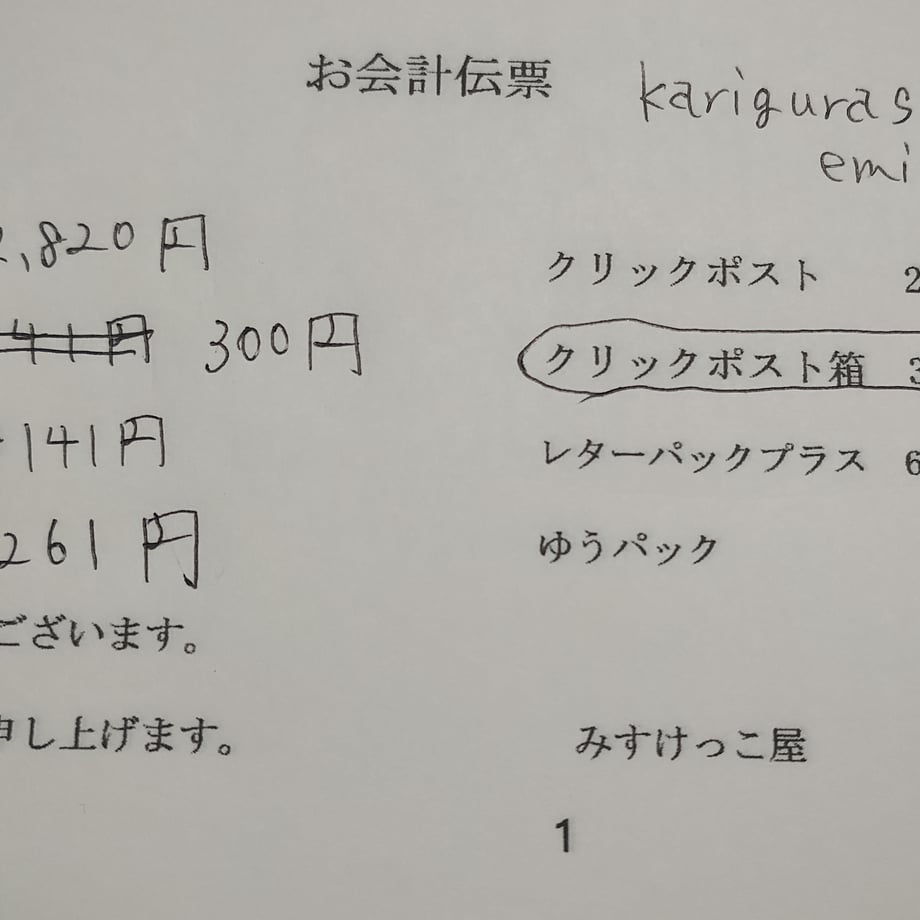 お会計伝票
kariguras
emi
2,820円
41円 300円
141円
261円
ございます。
申し上げます。
クリックポスト 2
クリックポスト箱 3
レターパックプラス 6
ゆうパック
みすけっこ屋
1